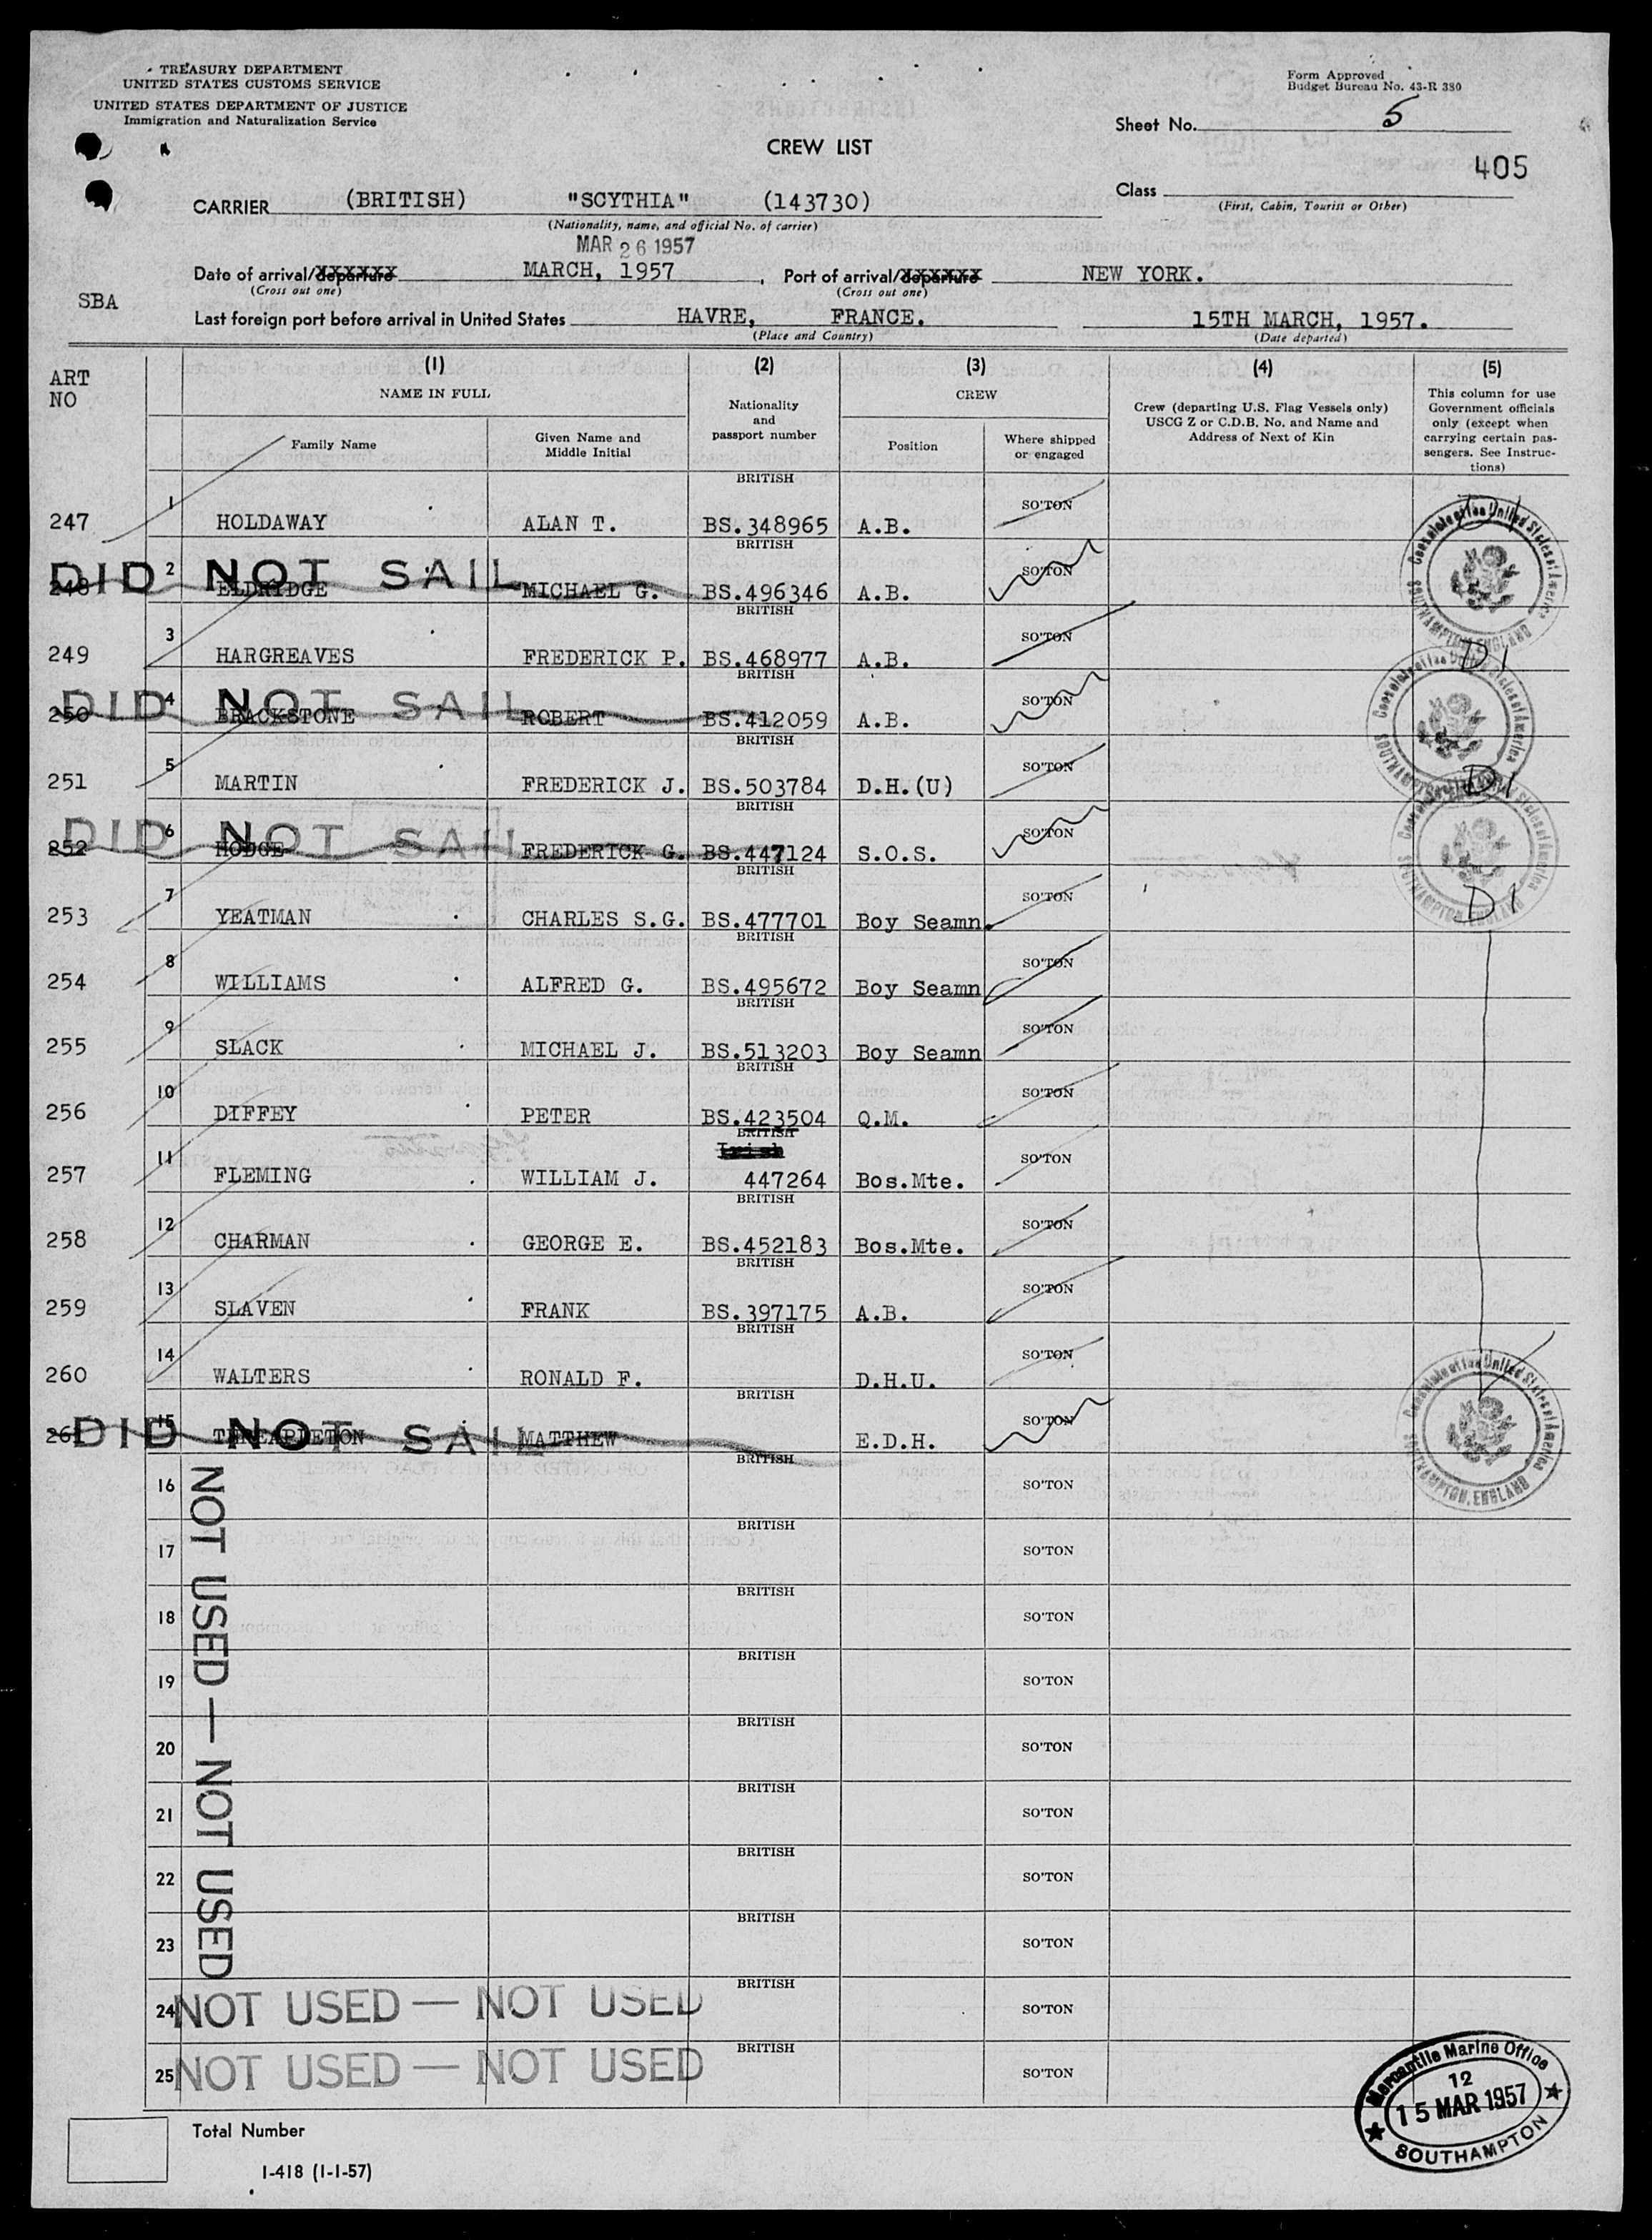 TREASURY DEPARTMENT
UNITED STATES CUSTOMS SERVICE
UNITED STATES DEPARTMENT OF JUSTICE
Immigration and Naturalization Service
Form Approved
Budget Bureau No. 43-R 380
Sheet No. 5
CREW LIST
405
CARRIER (BRITISH) "SCYTHIA" (143730)
(Nationality, name, and official No. of carrier)
Class
(First, Cabin, Tourist or Other)
MAR 26 1957
Date of arrival/departure MARCH, 1957, Port of arrival/departure NEW YORK.
(Cross out one) (Cross out one)
SBA
Last foreign port before arrival in United States HAVRE, FRANCE. 15TH MARCH, 1957.
(Place and Country) (Date departed)
ART NO
(1) (2) (3) (4) (5)
NAME IN FULL
Family Name
Given Name and Middle Initial
Nationality and passport number
CREW
Position
Where shipped or engaged
Crew (departing U.S. Flag Vessels only) USCG Z or C.D.B. No. and Name and Address of Next of Kin
This column for use Government officials only (except when carrying certain passengers. See Instructions)
BRITISH
247 1 HOLDAWAY ALAN T. BS.348965 A.B. SO'TON D1
BRITISH
DID NOT SAIL
248 2 ELDRIDGE MICHAEL G. BS.496346 A.B. SO'TON
BRITISH
249 3 HARGREAVES FREDERICK P. BS.468977 A.B. SO'TON D1
BRITISH
DID NOT SAIL
250 4 BRACKSTONE ROBERT BS.412059 A.B. SO'TON
BRITISH
251 5 MARTIN FREDERICK J. BS.503784 D.H.(U) SO'TON D1
BRITISH
DID NOT SAIL
252 6 HODGE FREDERICK G. BS.447124 S.O.S. SO'TON
BRITISH
253 7 YEATMAN CHARLES S.G. BS.477701 Boy Seamn. SO'TON D1
BRITISH
254 8 WILLIAMS ALFRED G. BS.495672 Boy Seamn SO'TON
BRITISH
255 9 SLACK MICHAEL J. BS.513203 Boy Seamn SO'TON
BRITISH
256 10 DIFFEY PETER BS.423504 Q.M. SO'TON
BRITISH
Irish
257 11 FLEMING WILLIAM J. 447264 Bos.Mte. SO'TON
BRITISH
258 12 CHARMAN GEORGE E. BS.452183 Bos.Mte. SO'TON
BRITISH
259 13 SLAVEN FRANK BS.397175 A.B. SO'TON
BRITISH
260 14 WALTERS RONALD F. D.H.U. SO'TON
BRITISH
DID NOT SAIL
261 15 MATTHEW E.D.H. SO'TON
Consulate of the United States of America
SOUTHAMPTON, ENGLAND
BRITISH
16 SO'TON
BRITISH
17 SO'TON
BRITISH
18 SO'TON
BRITISH
19 SO'TON
BRITISH
20 SO'TON
BRITISH
21 SO'TON
BRITISH
22 SO'TON
BRITISH
23 SO'TON
NOT USED — NOT USED
BRITISH
24 NOT USED — NOT USED SO'TON
BRITISH
25 NOT USED — NOT USED SO'TON
Mercantile Marine Office
12
15 MAR 1957
SOUTHAMPTON
Total Number
I-418 (1-1-57)